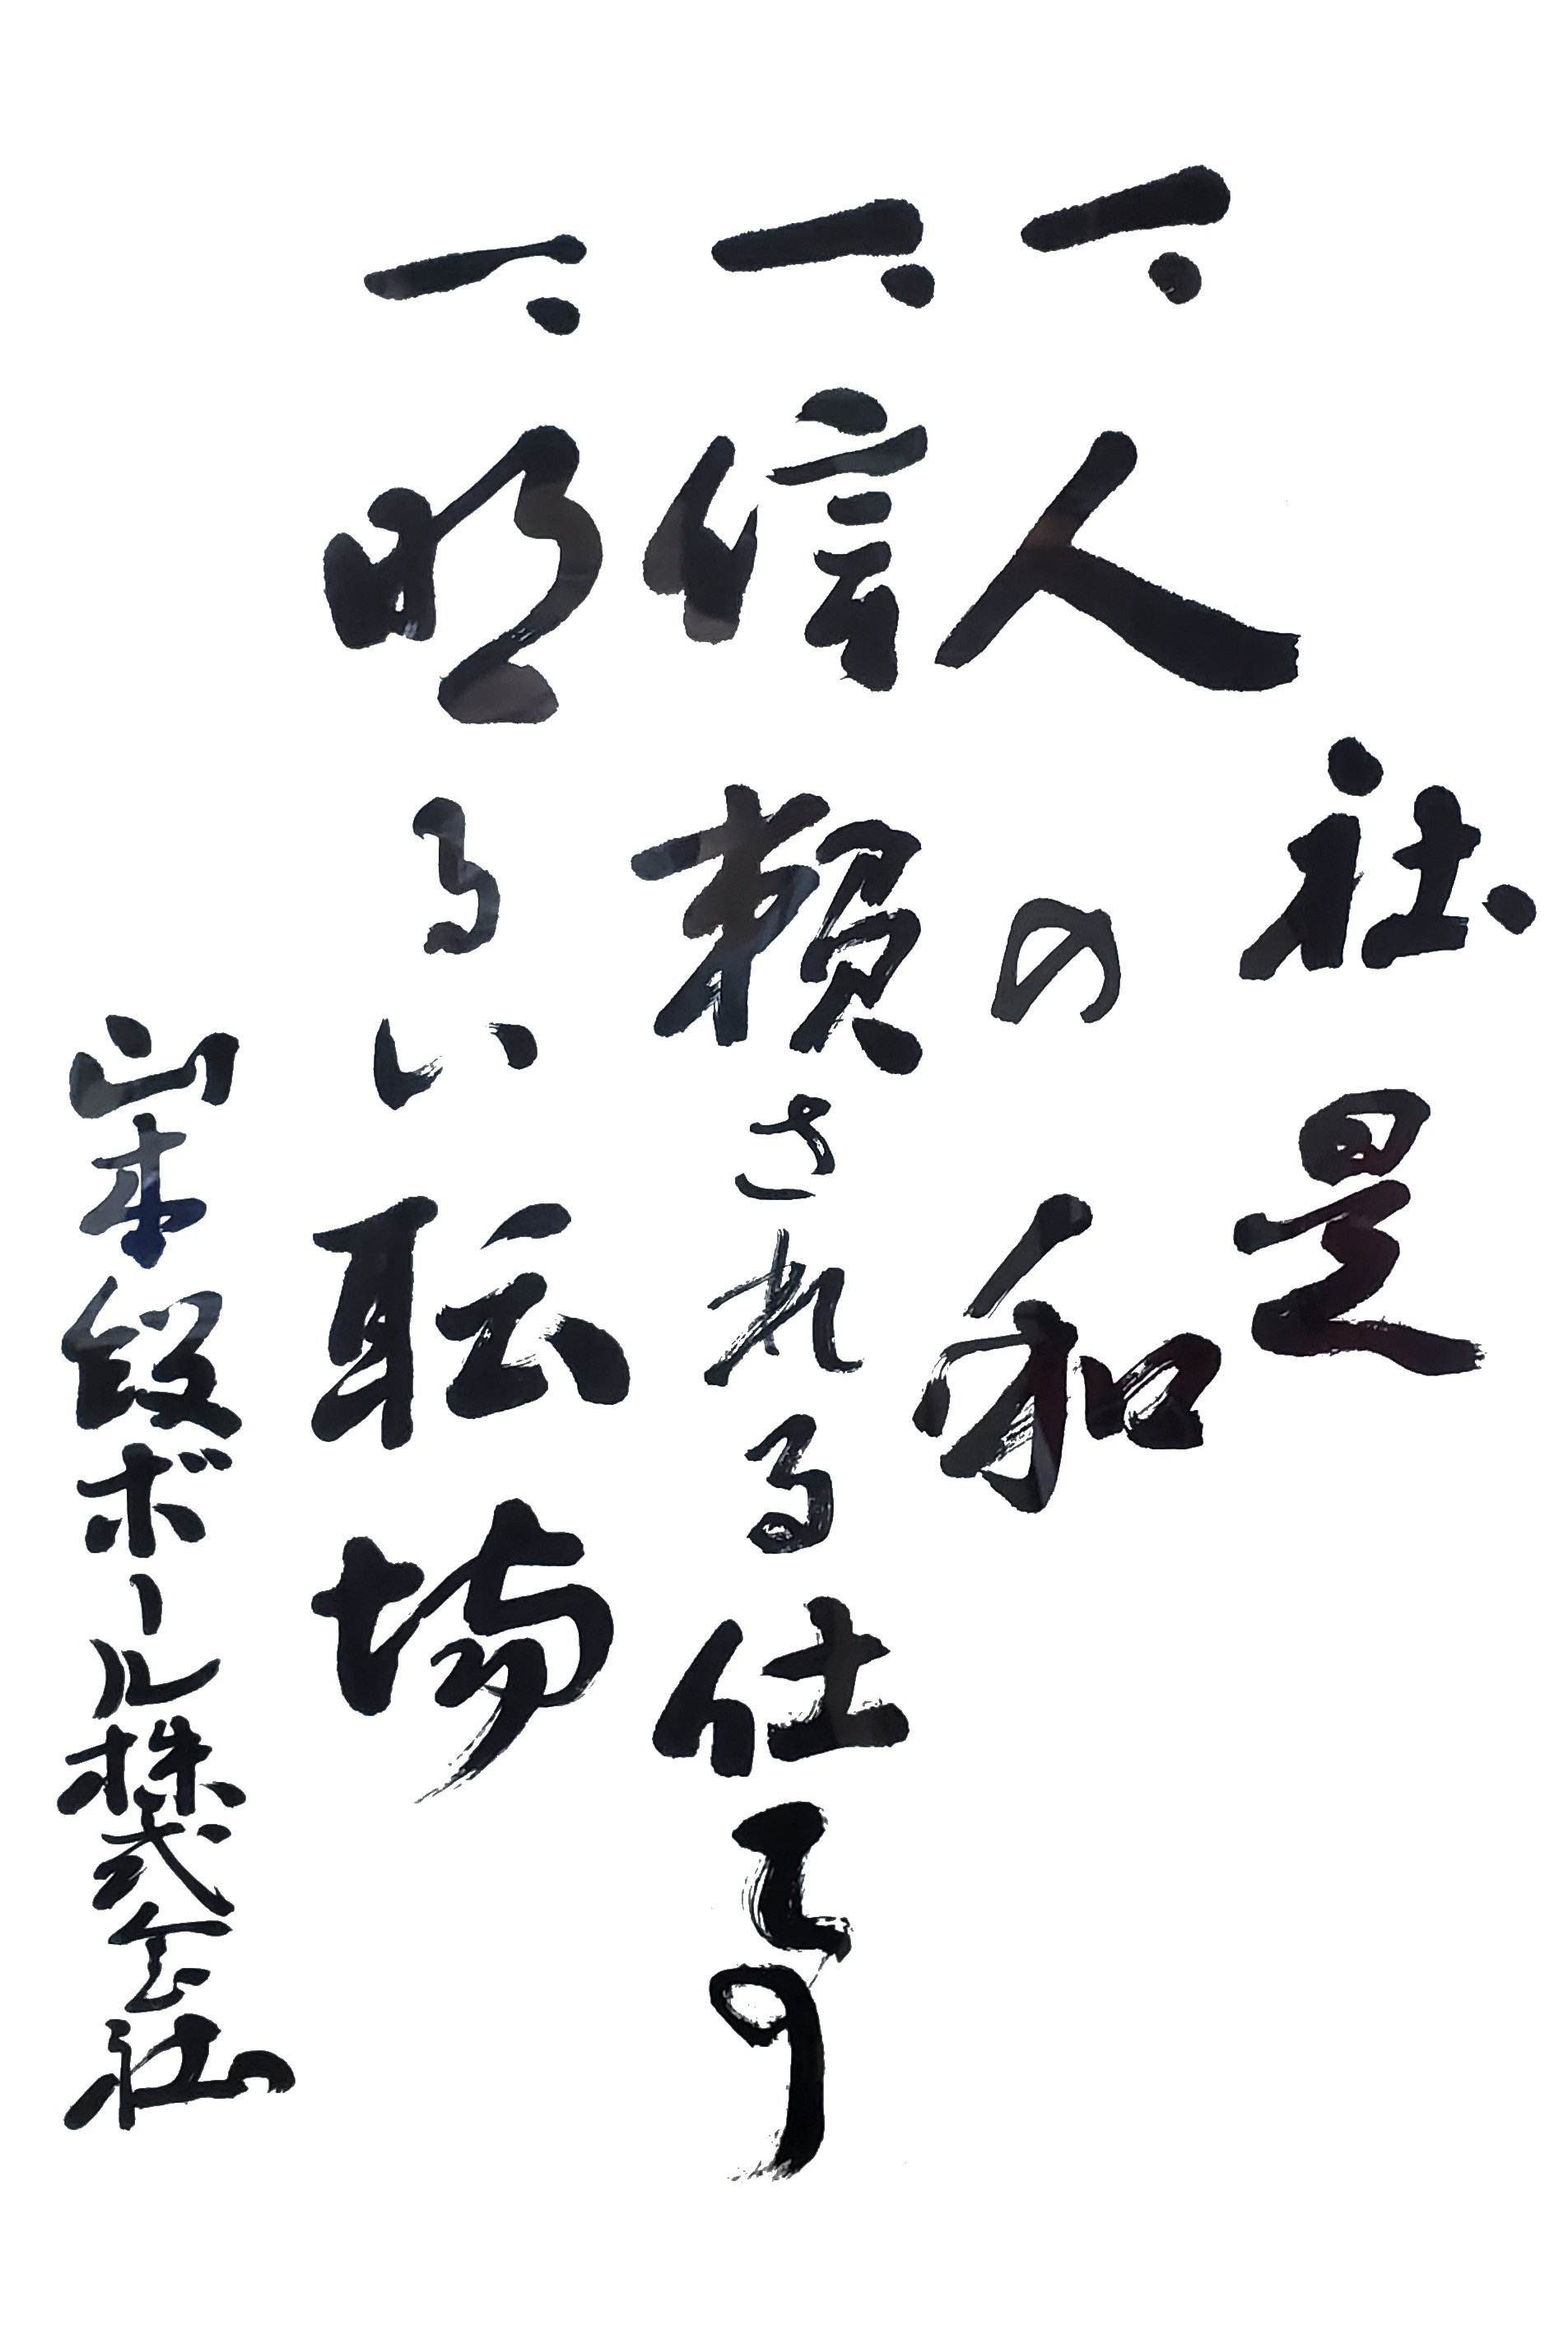 社是
一、人の和
一、信頼される仕事
一、明るい職場
山本段ボール株式会社